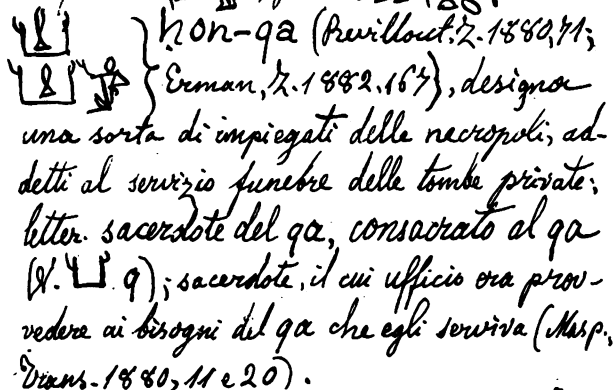 hon-qa (Revillout, Z. 1880, 71;
Erman, Z. 1882. 167), designa
una sorta di impiegati delle necropoli, ad-
detti al servizio funebre delle tombe private;
letter. sacerdote del qa, consacrato al qa
(V. q); sacerdote, il cui ufficio era prov-
vedere ai bisogni del qa che egli serviva (Masp.,
Trans. 1880, 11 e 20).